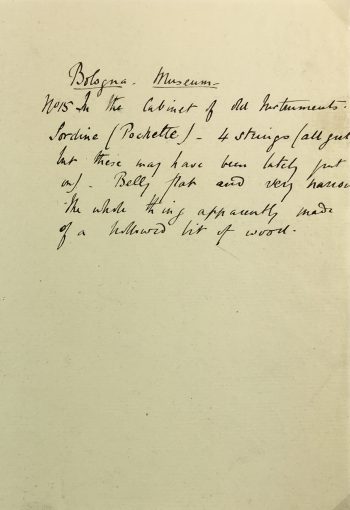 Bologna. Museum.
No 15 In the Cabinet of Old Instruments.
Sordine (Pochette) - 4 strings (all gut
but these may have been lately put
on) - Belly flat and very narrow
The whole thing apparently made
of a hollowed bit of wood.